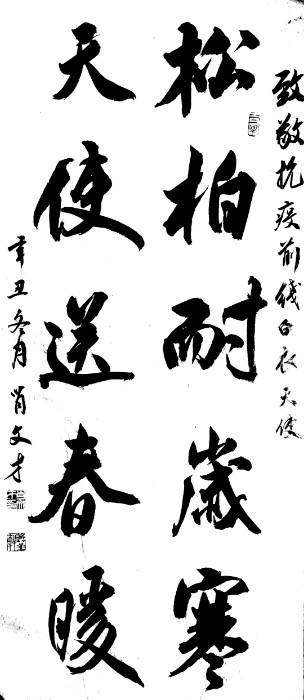 致敬抗疫前线白衣天使
松柏耐岁寒
天使送春暖
辛丑冬月肖文才